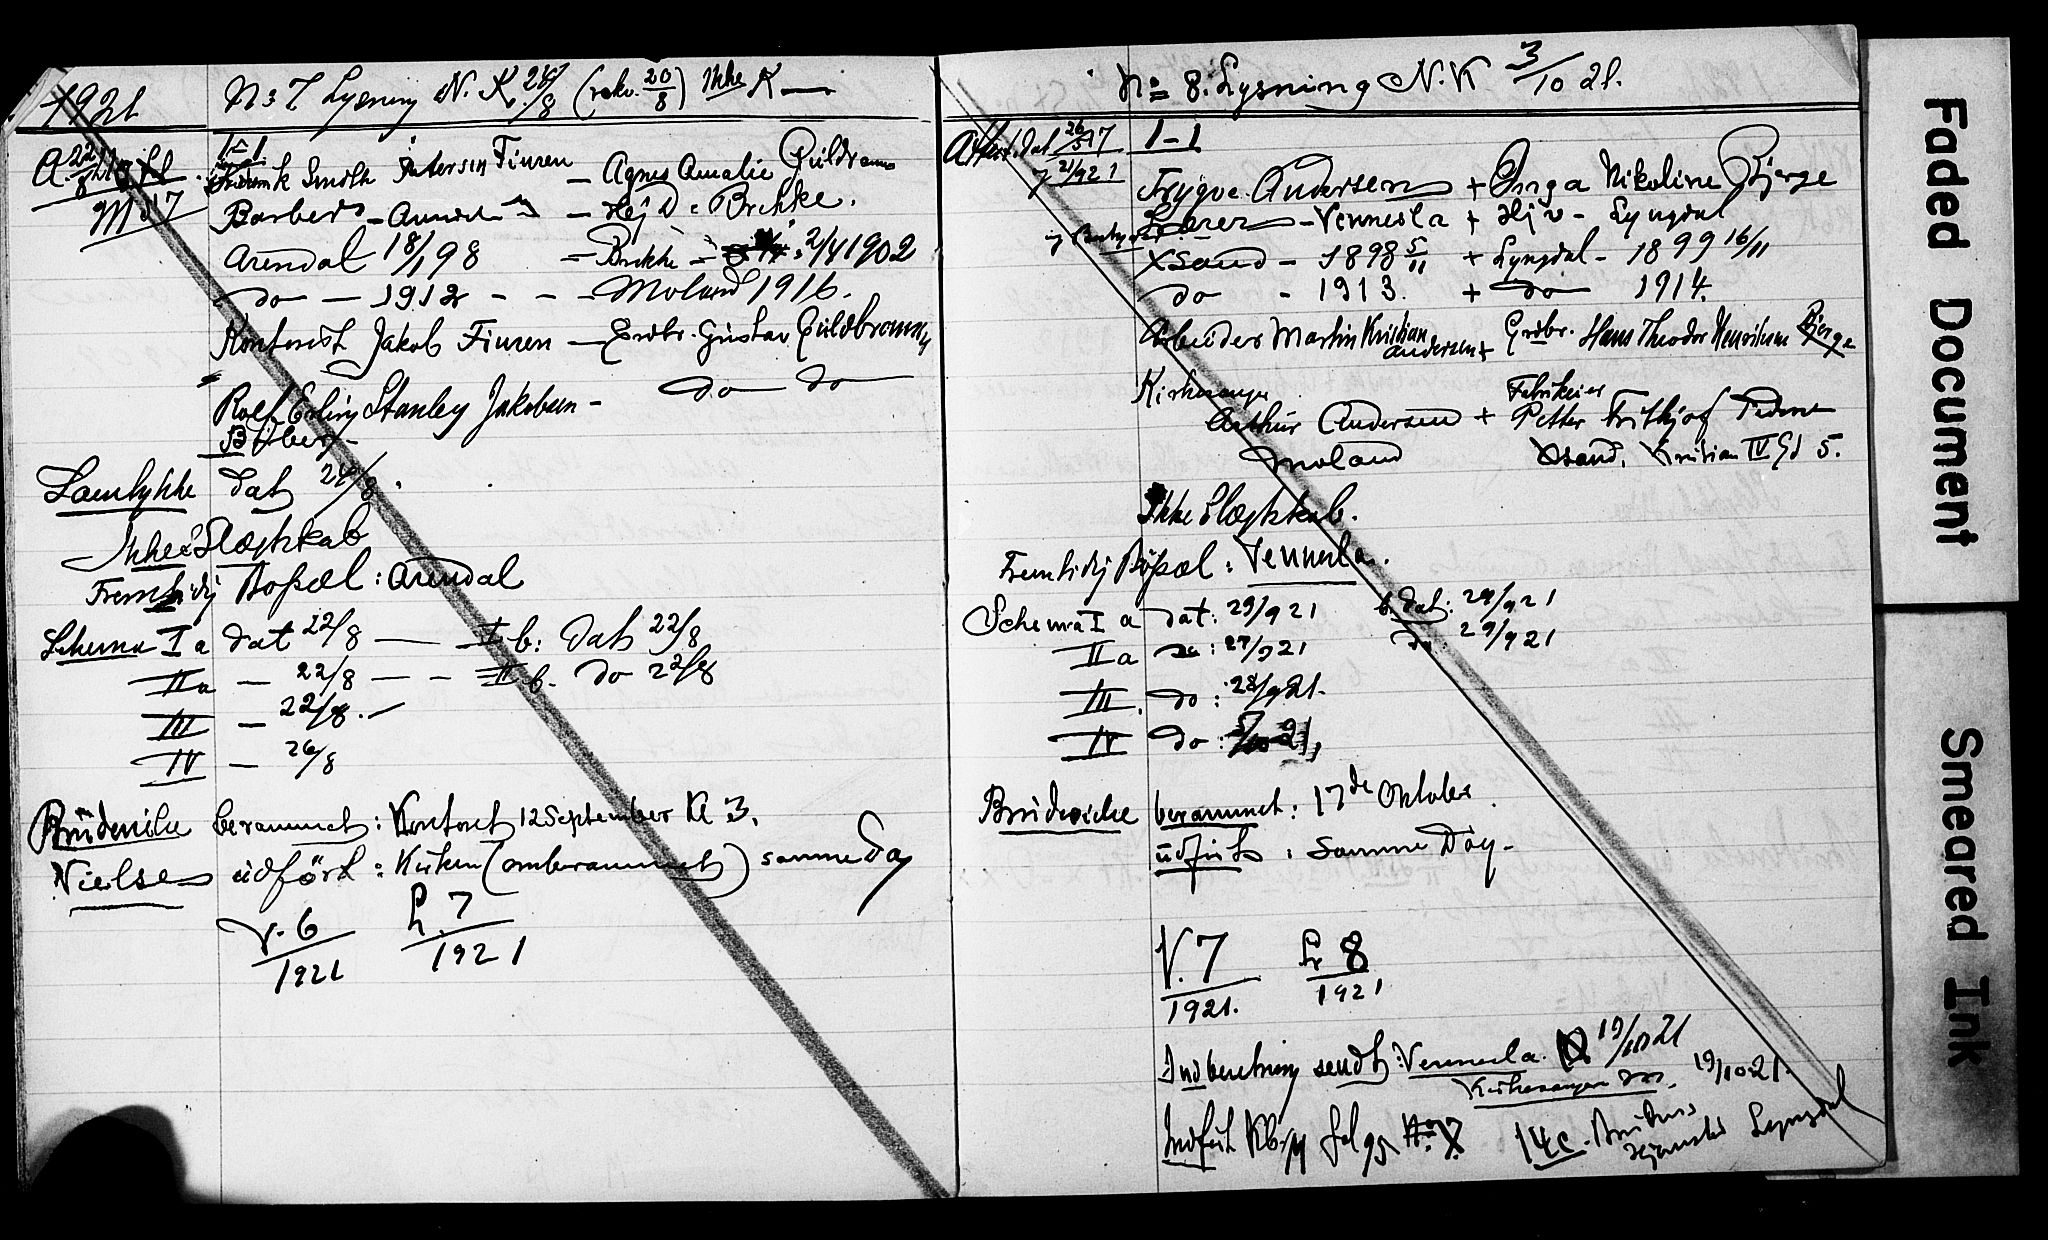 1921
No 7 Lysning N. K. 24/8 (rekv. 20/8) Ikke K
1-1
Fredrik Smith Petersen Finsen - Agnes Amalie Guldbrands
Barber - Arendal - Hj D: Brekke.
Arendal 18/1 98 - Brekke - 2/4 1902
do - 1912 - - - Moland 1916.
Kontorist Jakob Finsen - Grdbr. Gustav Guldbrands
Rolf Erling Stanley Jakobsen - do do
Samtykke dat 24/8.
Ikke Slægtskab
Fremtidig Bopæl: Arendal
Schema I a dat 22/8 - I b: dat 22/8
II a - 22/8 - - II b. do 22/8
III - 22/8. -
IV - 26/8
Brudevielse berammet: Kontoret 12 September Kl 3.
Nielsen udført: Kirken (omberammet) samme Dag
V. 6 L. 7
1921 1921
No 8. Lysning N. K 3/10 21.
Attest. dat 26/9
1-1
Trygve Andersen + Inga Nikoline Bjerge
Lærer - Vennesla + Hj v - Lyngdal
Xsand - 1898 5/11 + Lyngdal - 1899 16/11
do - 1913. + do 1914.
Arbeider Martin Kristian Andersen + Grdbr. Hans Theodor Henriksen Bjerge
Kirkesanger Fabrikeier
Arthur Andersen + Petter Frithjof
Moland Xsand, Kristian IV Gd 5.
Ikke Slægtskab.
Fremtidig Bopæl: Vennesla.
Schema I a dat: 29/9 21 b. dat: 29/9 21
II a do: 27/9 21 do: 29/9 21
III do: 28/9 21.
IV do: 5/10 21,
Brudevielse berammet: 17de Oktober
udført: Samme Dag -
V. 7 L. 8
1921. 1921
Indberetning sendt: Vennesla 19/10 21
Kirkesangeren 19/10 21.
Indført Kb. fol 95 No 7 14 c. Brudens Hjemsted Lyngdal
Faded Document
Smeared Ink